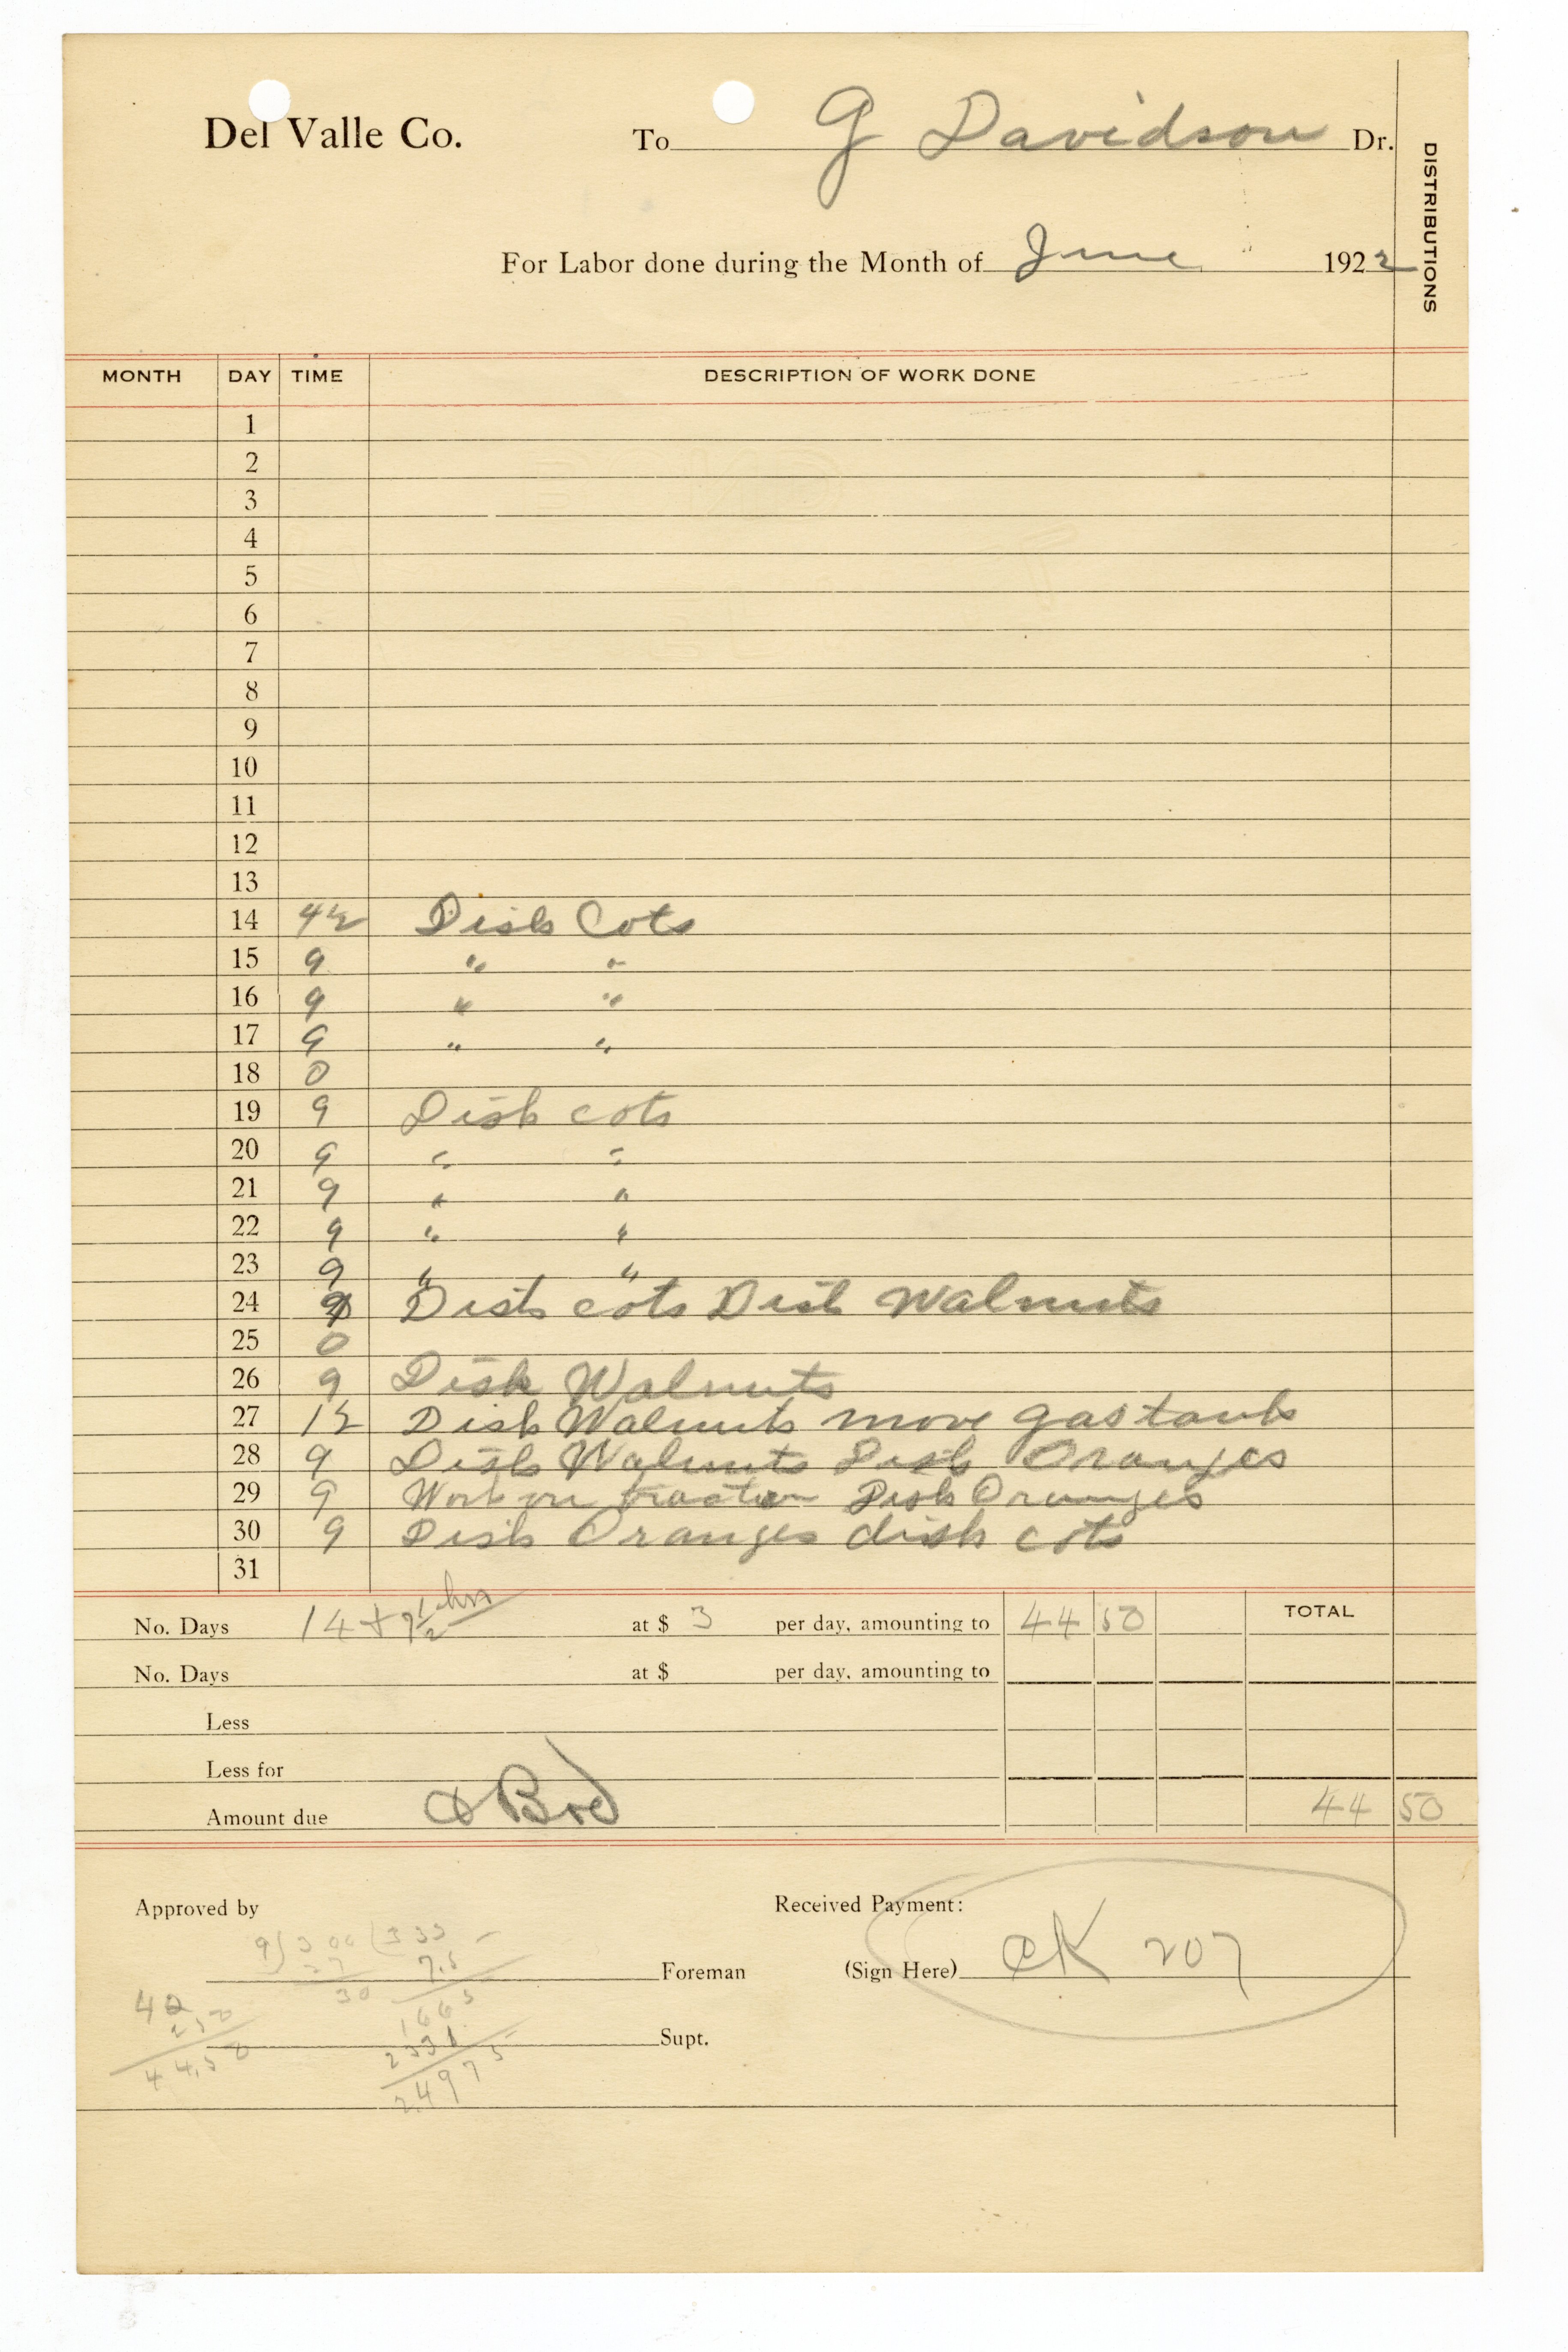 Del Valle Co. To G Davidson Dr.
DISTRIBUTIONS
For Labor done during the Month of June 1922
MONTH DAY TIME DESCRIPTION OF WORK DONE
1
2
3
4
5
6
7
8
9
10
11
12
13
14 4½ Disk Cots
15 9 " "
16 9 " "
17 9 " "
18 0
19 9 Disk cots
20 9 " "
21 9 " "
22 9 " "
23 9 " "
24 9 Disk cots Disk Walnuts
25 0
26 9 Disk Walnuts
27 12 Disk Walnuts move gas tank
28 9 Disk Walnuts Disk Oranges
29 9 Work on tractor Disk Oranges
30 9 Disk Oranges disk cots
31
No. Days 14 + 7½ hrs at $ 3 per day, amounting to 44 50 TOTAL
No. Days at $ per day, amounting to
Less
Less for
Amount due & Brd 44 50
Approved by Received Payment:
9) 3 00 ( 3 33
27 7.5
Foreman (Sign Here) CK 207
30
1665
42
2 50
2331
Supt.
44.50
24975